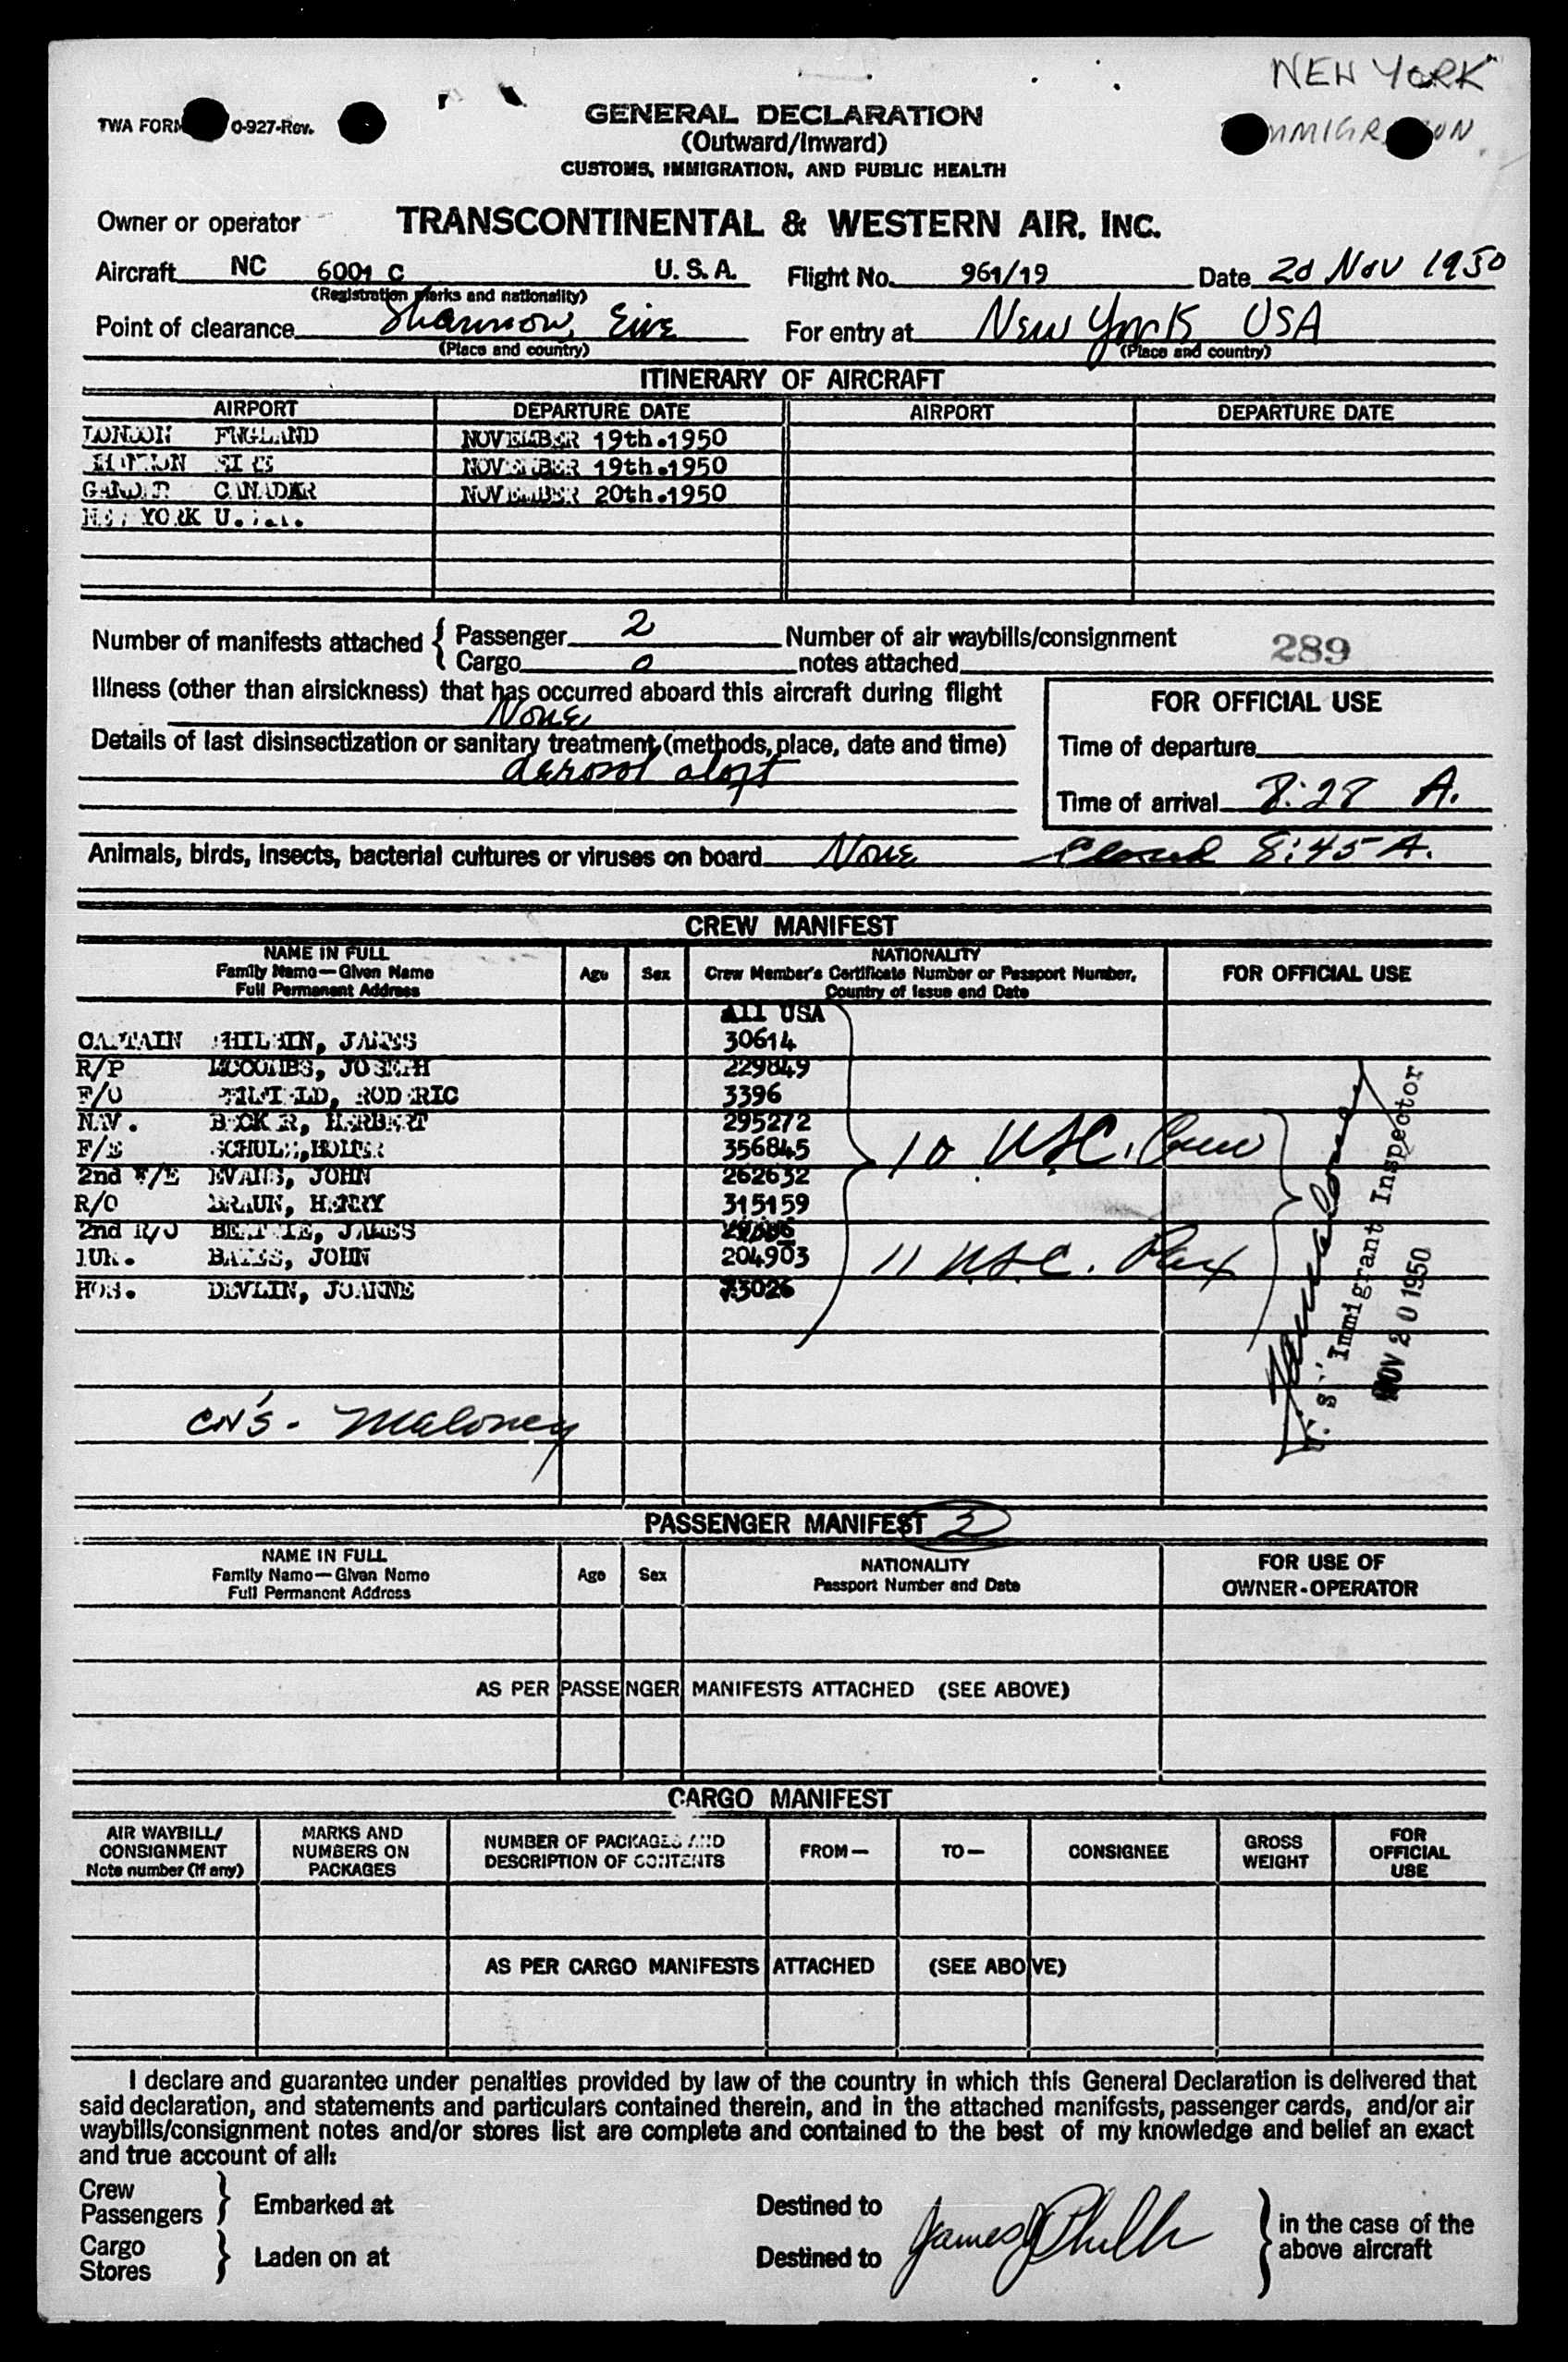 NEW YORK
TWA FORM 0-927-Rev.
GENERAL DECLARATION
(Outward/Inward)
CUSTOMS, IMMIGRATION, AND PUBLIC HEALTH
Owner or operator TRANSCONTINENTAL & WESTERN AIR, INC.
Aircraft NC 6001 C U. S. A. Flight No. 961/19 Date 20 Nov 1950
(Registration marks and nationality)
Point of clearance Shannon, Eire For entry at New York USA
(Place and country) (Place and country)
ITINERARY OF AIRCRAFT
AIRPORT DEPARTURE DATE AIRPORT DEPARTURE DATE
LONDON ENGLAND NOVEMBER 19th.1950
NOVEMBER 19th.1950
GANDER NOVEMBER 20th.1950
NEW YORK
Number of manifests attached { Passenger 2 Number of air waybills/consignment 289
Cargo 0 notes attached
Illness (other than airsickness) that has occurred aboard this aircraft during flight
None
FOR OFFICIAL USE
Details of last disinsectization or sanitary treatment (methods, place, date and time)
aerosol aloft
Time of departure
Time of arrival 8:28 A.
Animals, birds, insects, bacterial cultures or viruses on board None Closed 8:45 A.
CREW MANIFEST
NAME IN FULL
Family Name—Given Name
Full Permanent Address
Age Sex
NATIONALITY
Crew Member's Certificate Number or Passport Number,
Country of Issue and Date
FOR OFFICIAL USE
All USA
CAPTAIN PHILBIN, JAMES 30614
R/P MCCOMBS, JOSEPH 229849
F/O RODERIC 3396
NAV. BECKER, HERBERT 295272
F/E 356845
2nd F/E EVANS, JOHN 262632
R/O BRAUN, HARRY 315159
2nd R/O BEATTIE, JAMES
PUR. BATES, JOHN 204903
HOS. DEVLIN, JOANNE 73026
10 USC. Crew
11 USC. Pax
U.S. Immigrant Inspector
NOV 20 1950
CN's - Maloney
PASSENGER MANIFEST 2
NAME IN FULL
Family Name—Given Name
Full Permanent Address
Age Sex
NATIONALITY
Passport Number and Date
FOR USE OF
OWNER-OPERATOR
AS PER PASSENGER MANIFESTS ATTACHED (SEE ABOVE)
CARGO MANIFEST
AIR WAYBILL/
CONSIGNMENT
Note number (if any)
MARKS AND
NUMBERS ON
PACKAGES
NUMBER OF PACKAGES AND
DESCRIPTION OF CONTENTS
FROM—
TO—
CONSIGNEE
GROSS
WEIGHT
FOR
OFFICIAL
USE
AS PER CARGO MANIFESTS ATTACHED (SEE ABOVE)
I declare and guarantee under penalties provided by law of the country in which this General Declaration is delivered that
said declaration, and statements and particulars contained therein, and in the attached manifests, passenger cards, and/or air
waybills/consignment notes and/or stores list are complete and contained to the best of my knowledge and belief an exact
and true account of all:
Crew
Passengers } Embarked at Destined to
Cargo
Stores } Laden on at Destined to
James
} in the case of the
above aircraft